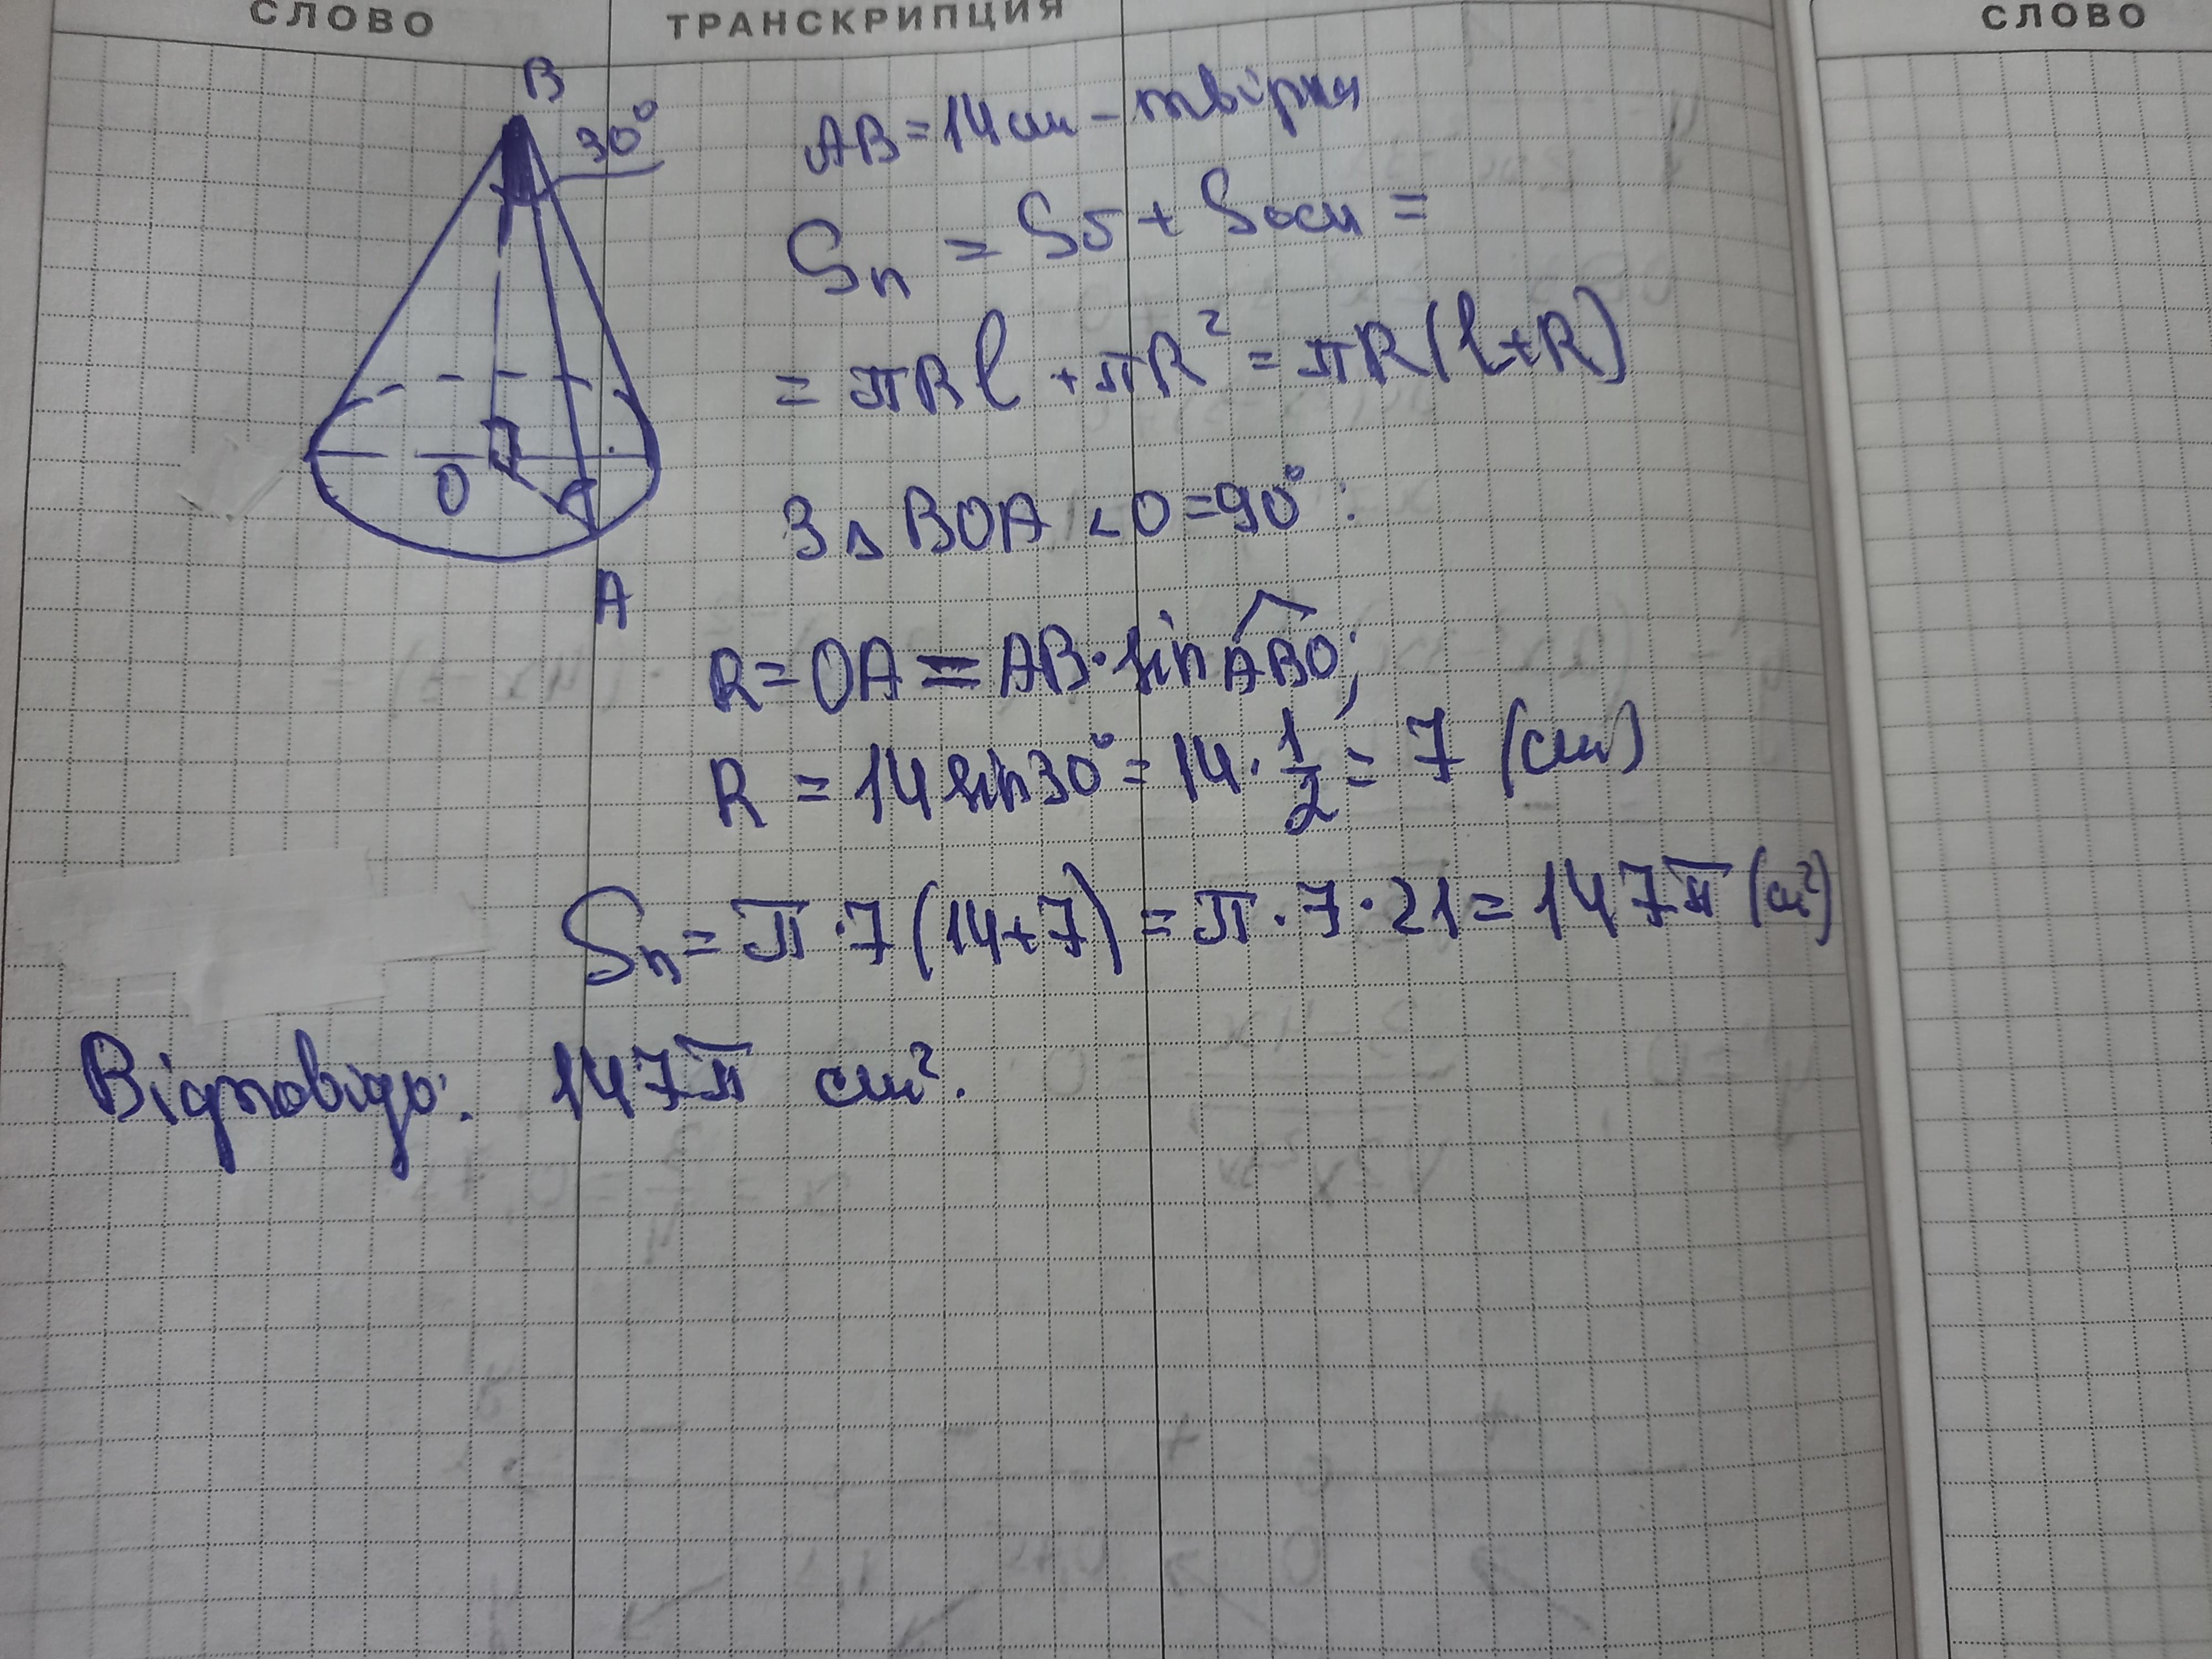 СЛОВО ТРАНСКРИПЦИЯ СЛОВО
B
30°
O
A
AB = 14 см - твірна
Sп = Sб + Sосн =
= πRl + πR² = πR(l+R)
З △ BOA ∠O = 90°:
R = OA = AB · sin ABO;
R = 14 sin 30° = 14 · 1/2 = 7 (см)
Sп = π · 7 (14+7) = π · 7 · 21 = 147π (см²)
Відповідь: 147π см².